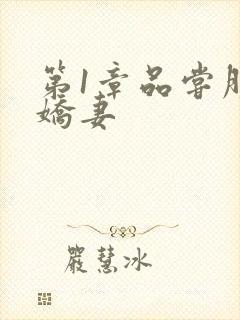 第1章品尝朋
娇妻
严慧冰